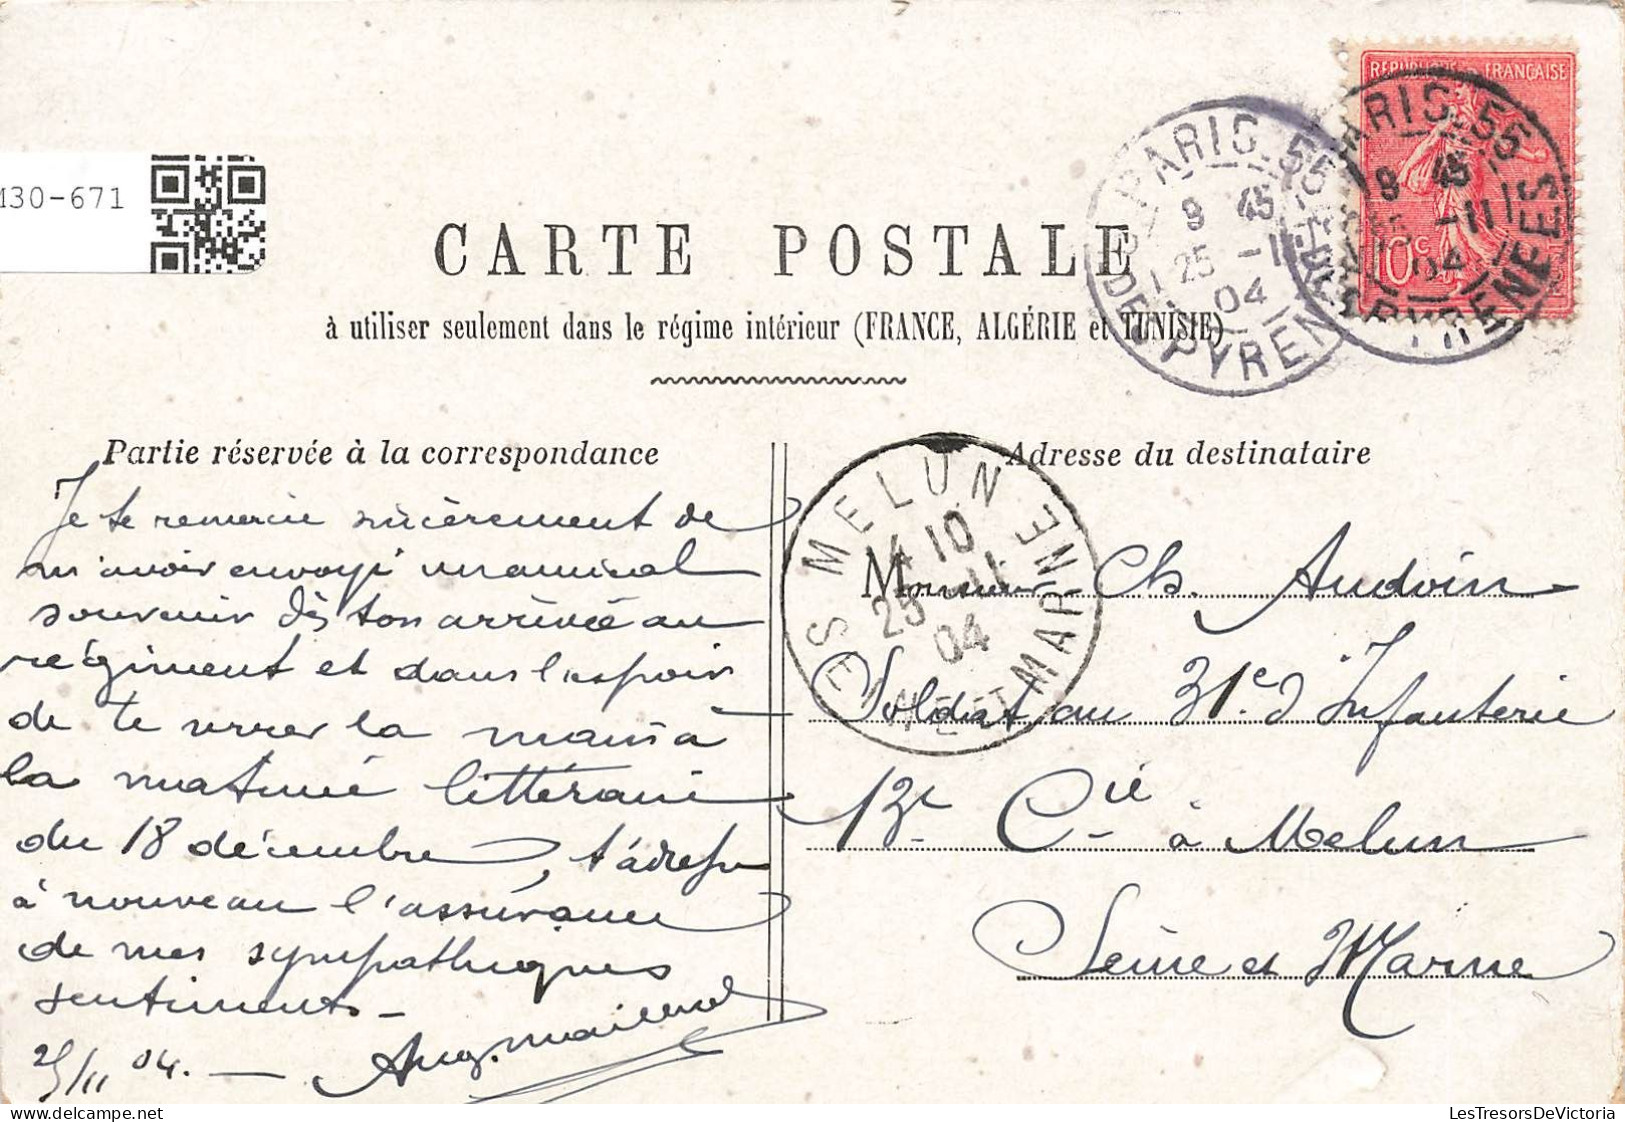 REPUBLIQUE FRANÇAISE
10c
PARIS.55
9 45
25 -11
04
R. DES PYRENEES
PARIS.55
9 45
25 -11
04
PYRENEES
M30-671
CARTE POSTALE
à utiliser seulement dans le régime intérieur (FRANCE, ALGÉRIE et TUNISIE)
Partie réservée à la correspondance
Je te remercie sincèrement de
m'avoir envoyé un amical
souvenir dès ton arrivée au
régiment et dans l'espoir
de te serrer la main à
la matinée littéraire
du 18 décembre, t'adresse
à nouveau l'assurance
de mes sympathiques
sentiments -
25/11 04. —
MELUN
4 10
25 -11
04
SEINE ET MARNE
Adresse du destinataire
Monsieur Ch. Audoin
Soldat au 31e d'Infanterie
13e Cie à Melun
Seine et Marne
LesTresorsDeVictoria